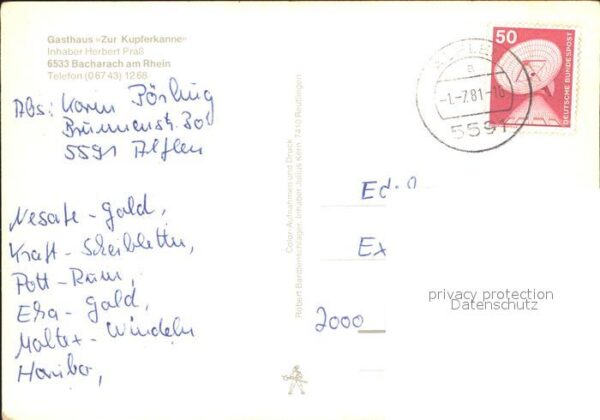 Gasthaus »Zur Kupferkanne«
Inhaber Herbert Praß
6533 Bacharach am Rhein
Telefon (0 67 43) 12 68
Abs: Karin
Brunnenstr. 30
5591 Alflen
Nesate-Gold,
Kraft-Scheibletten,
Pott-Rum,
Eka-Gold,
Moltex-Windeln
Haribo,
Color-Aufnahmen und Druck
Robert Bardenschlager, Inhaber Julius Kern, 7410 Reutlingen
ALFLEN
a
-1.-7.81-16
5591
50
DEUTSCHE BUNDESPOST
Ed.
Ex
2000
privacy protection
Datenschutz